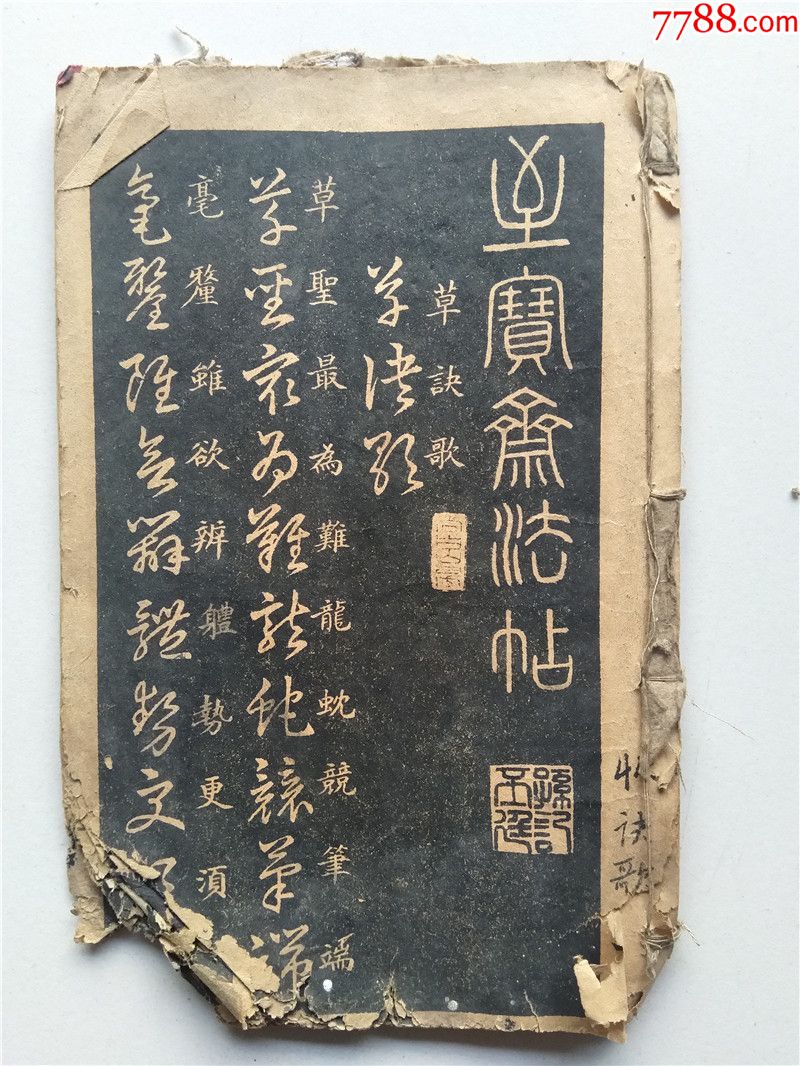 7788.com
至寶齋法帖
草訣歌
草訣歌
草聖最為難龍虵競筆端
草聖最為難龍虵競筆端
毫釐雖欲辨軆勢更湏
毫釐雖欲辨體勢更
诀歌